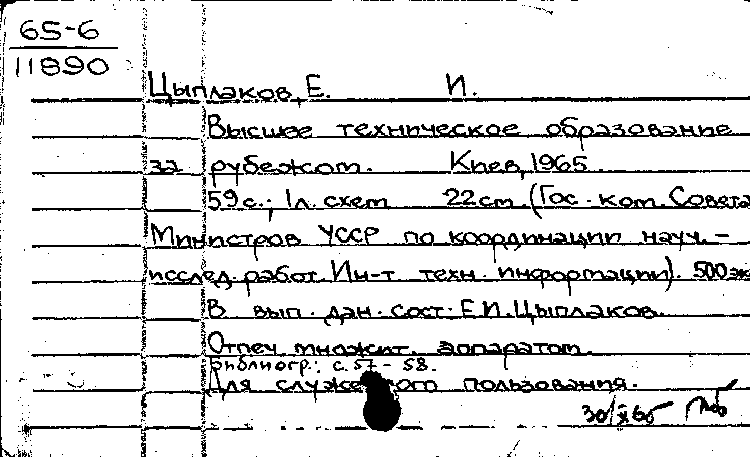 65-6
11890
Цыплаков, Е. И.
Высшее техническое образование
за рубежом. Киев, 1965.
59 с.; 1 л. схем 22 см. (Гос. ком. Совета
Министров УССР по координации науч.-
исслед. работ. Ин-т техн. информации). 500 эк
В вып. дан. сост.: Е.И. Цыплаков.
Отпеч. множит. аппаратом.
Библиогр.: с. 57-58.
Для служебного пользования.
30/XI 65